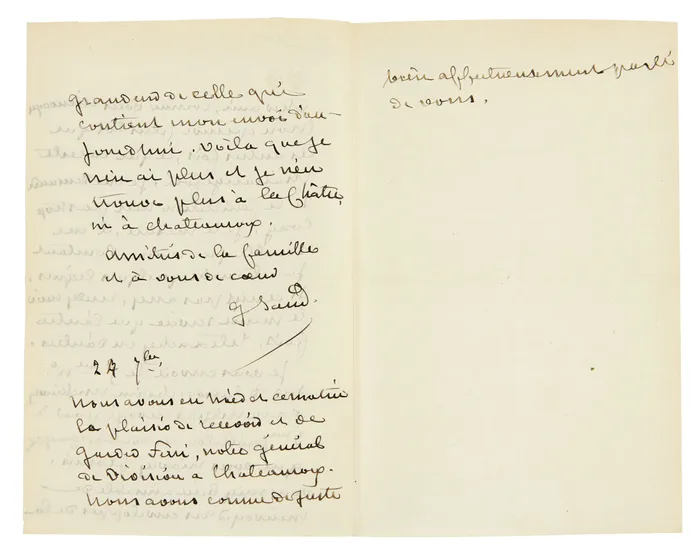 grandeur de celle qui
contient mon envoi d'au-
jourdhui. Voilà que je
n'en ai plus et je n'en
trouve plus à la Châtre,
ni à chateauroux.
amitiés de la famille
et à vous de cœur
G Sand.
24 7bre
Nous avons eu hier et ce matin
le plaisir de recevoir et de
garder Ferri, notre général
de division à Chateauroux.
Nous avons comme de juste
bien affectueusement parlé
de vous.